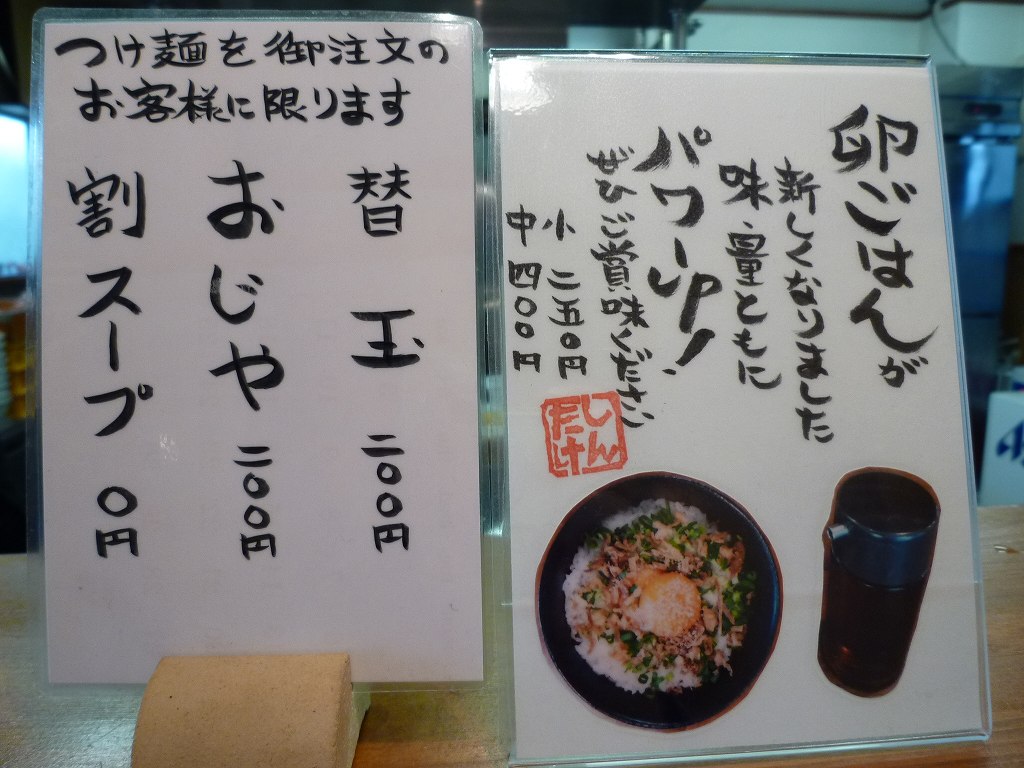 つけ麺を御注文の
お客様に限ります
替玉 二〇〇円
おじや 二〇〇円
割スープ 〇円
卵ごはんが
新しくなりました
味、量ともに
パワーUP!
ぜひご賞味ください
小 二五〇円
中 四〇〇円
しん
たけ